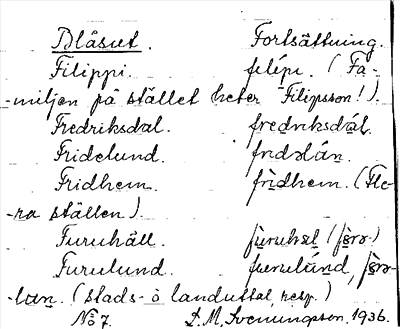 Blåsut. Fortsättning.
Filippi. filépi. (Fa-
-miljen på stället heter Filipsson!).
Fredriksdal. fredriksdál.
Fridelund.
Fridhem. frìdhem. (Fle-
-ra ställen).
Furuhäll.
Furulund.
(stads- o landuttal, resp.)
No 7. L. M. Svenungsson, 1936.